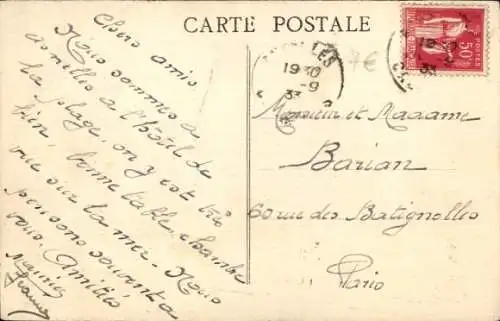 CARTE POSTALE
Chers amis
Nous sommes à
à l'Hôtel de
la plage, on y est très
bien, bonne table, chambre
vue sur la mer. Nous
pensons souvent à
vous. Amitiés
19 30
-9
33
7€
50
POSTES
Monsieur et Madame
Barian
60 rue des Batignolles
Paris